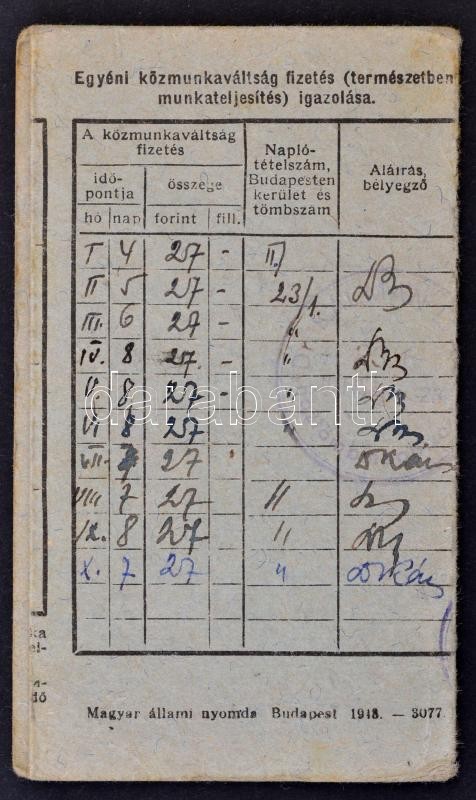 Egyéni közmunkaváltság fizetés (természetben
munkateljesítés) igazolása.
A közmunkaváltság
fizetés
idő-
pontja
összege
hó nap forint fill.
Napló-
tételszám,
Budapesten
kerület és
tömbszám
Aláírás,
bélyegző
I 4 27 - II/
II 5 27 - 23/1.
III. 6 27 - "
IV. 8 27. - "
V. 8 27 - "
VI 8 27 "
VII. 7 27
VIII 7 27 "
IX. 8 27 "
X. 7 27 "
darabanth
ka
el-
dő
Magyar állami nyomda Budapest 1948. — 3077